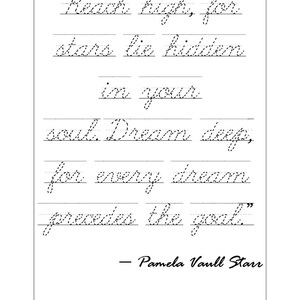 Reach high, for
stars lie hidden
in your
soul. Dream deep,
for every dream
precedes the goal.”
— Pamela Vaull Starr